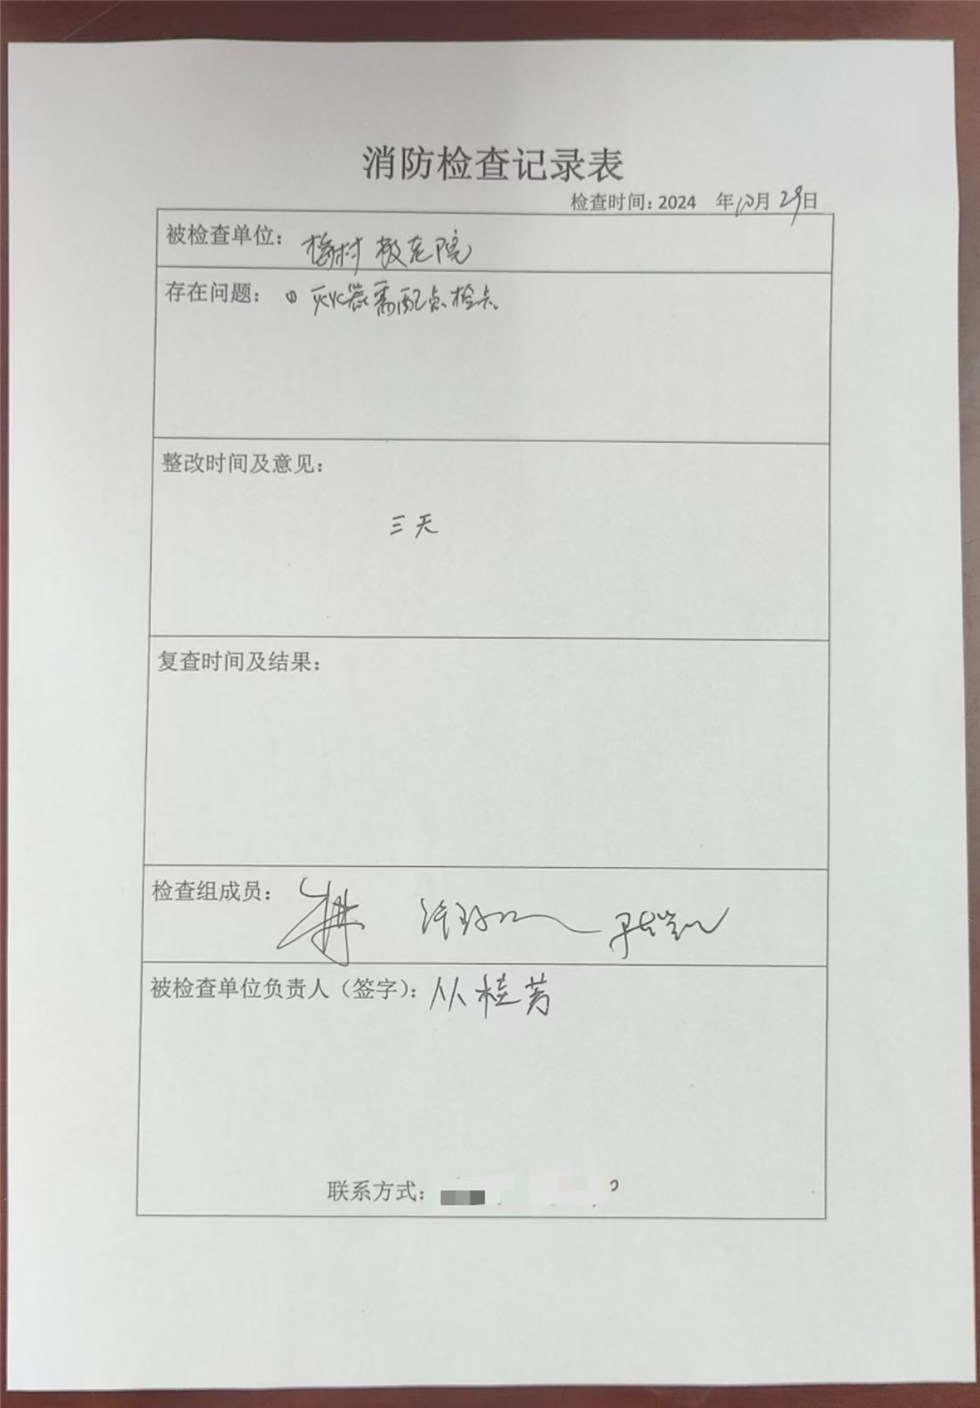 消防检查记录表
检查时间：2024 年10月29日
被检查单位： 梅村敬老院
存在问题： ① 灭火器需配点检卡
整改时间及意见：
三天
复查时间及结果：
检查组成员：
被检查单位负责人（签字）：从桂芳
联系方式：